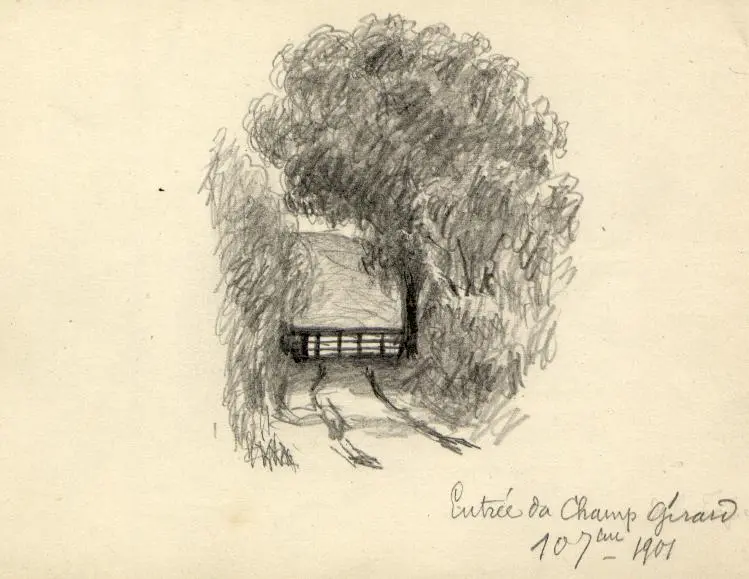 Entrée du Champ Gérard
10 7bre 1901